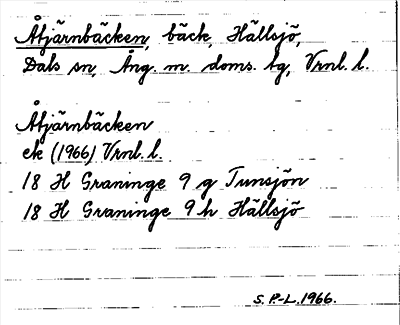 Åtjärnbäcken, bäck, Hällsjö,
Dals sn, Ång. m. doms. tg, Vrnl. l.
Åtjärnbäcken
ek (1966) Vrnl. l.
18 H Graninge 9 g Tunsjön
18 H Graninge 9 h Hällsjö
S. P-L. 1966.